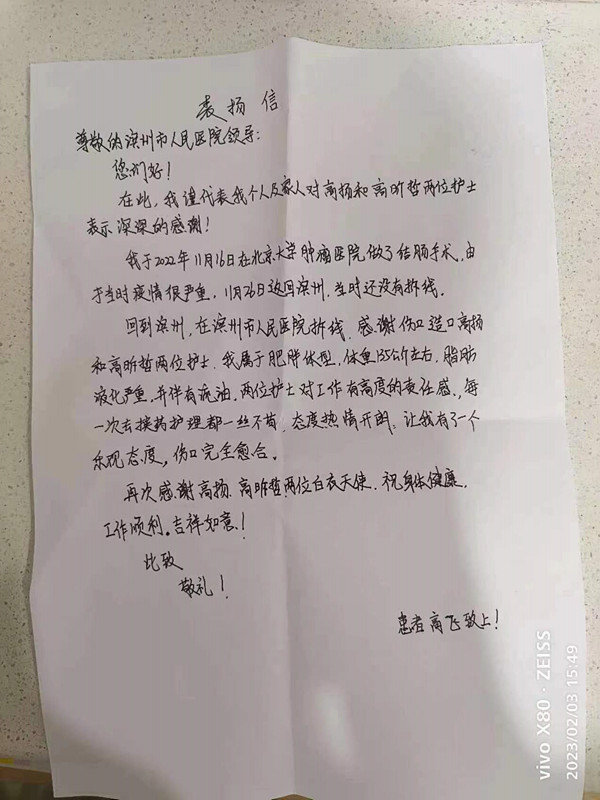 表扬信
尊敬的滨州市人民医院领导:
您们好!
在此,我谨代表我个人及家人对高扬和高昕哲两位护士
表示深深的感谢!
我于2022年11月16日在北京大学肿瘤医院做了结肠手术,由
于当时疫情很严重,11月26日返回滨州,当时还没有拆线。
回到滨州,在滨州市人民医院拆线,感谢伤口造口高扬
和高昕哲两位护士,我属于肥胖体型,体重135公斤左右,脂肪
液化严重,并伴有流油,两位护士对工作有高度的责任感,每
一次去换药护理都一丝不苟,态度热情开朗,让我有了一个
乐观态度,伤口完全愈合。
再次感谢高扬、高昕哲两位白衣天使,祝身体健康,
工作顺利。吉祥如意!
比致
敬礼!
患者高飞致上!
vivo X80 · ZEISS
2023/02/03 15:49